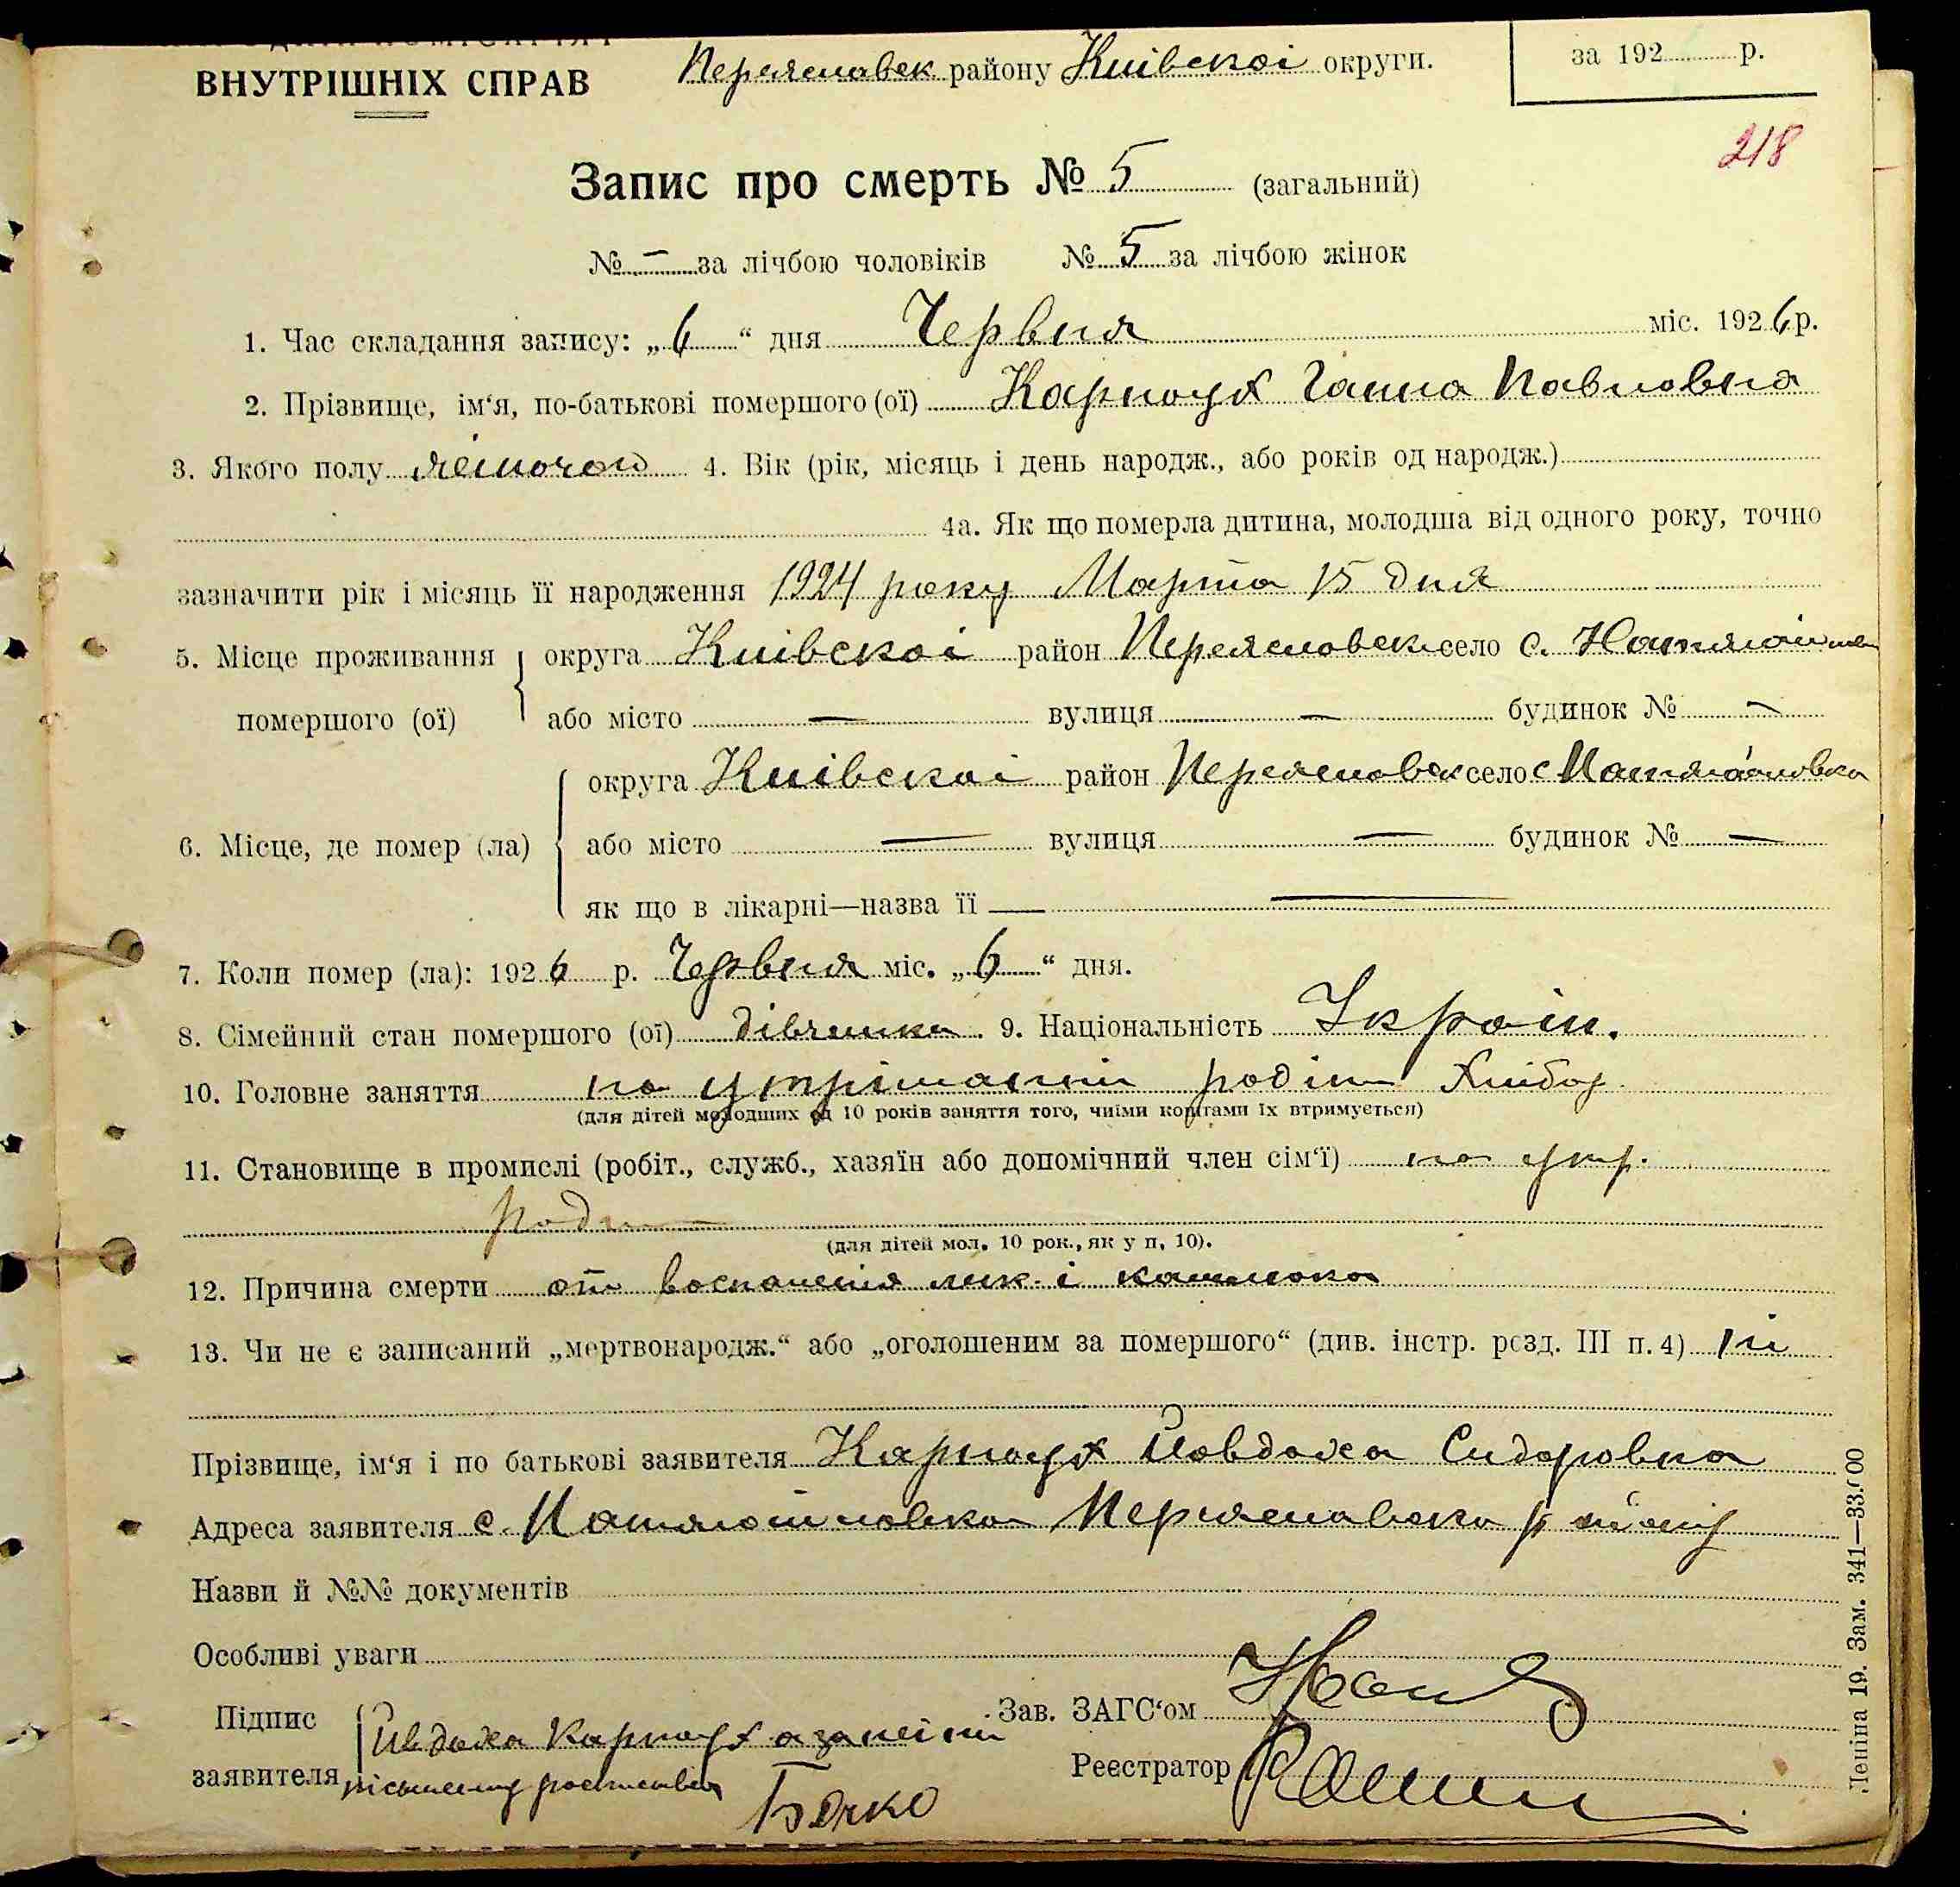 ВНУТРІШНІХ СПРАВ
Переяславск району Київскоі округи.
за 192 р.
218
Запис про смерть № 5 (загальний)
№ – за лічбою чоловіків № 5 за лічбою жінок
1. Час складання запису: „6“ дня Червня міс. 1926 р.
2. Прізвище, ім‘я, по-батькові помершого (ої) Карнаух Ганна Павловна
3. Якого полу жіночого 4. Вік (рік, місяць і день народж., або років од народж.)
4а. Як що померла дитина, молодша від одного року, точно
зазначити рік і місяць її народження 1924 року Марта 15 дня
5. Місце проживання помершого (ої) округа Київскоі район Переяславск село с.
або місто — вулиця — будинок № —
6. Місце, де помер (ла) округа Київскоі район Переяславск село с
або місто — вулиця — будинок № —
як що в лікарні—назва її —
7. Коли помер (ла): 1926 р. Червня міс. „6“ дня.
8. Сімейний стан помершого (ої) дівчинка 9. Національність Україн.
10. Головне заняття на утріманні родін Хлібор.
(для дітей молодших од 10 років заняття того, чиїми коштами їх втримується)
11. Становище в промислі (робіт., служб., хазяїн або допомічний член сім‘ї) на утр.
родин
(для дітей мол. 10 рок., як у п. 10).
12. Причина смерти от воспаления лик. і
13. Чи не є записаний „мертвонародж.“ або „оголошеним за помершого“ (див. інстр. розд. III п. 4) ні
Прізвище, ім‘я і по батькові заявителя Карнаух Йовдоха Сидоровна
Адреса заявителя с. Переяславско району
Назви й №№ документів
Особливі уваги
Підпис заявителя Йвдоха Карнаух а за неі
Бочко
Зав. ЗАГС‘ом
Реєстратор
Леніна 19. Зам. 341—33.000